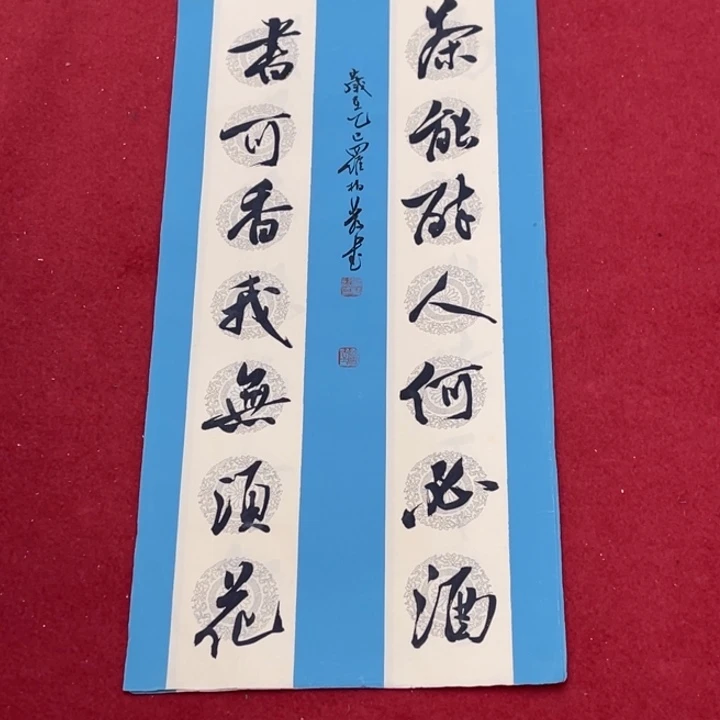 茶能醉人何必酒
書可香我無須花
歲在乙巳羅松書